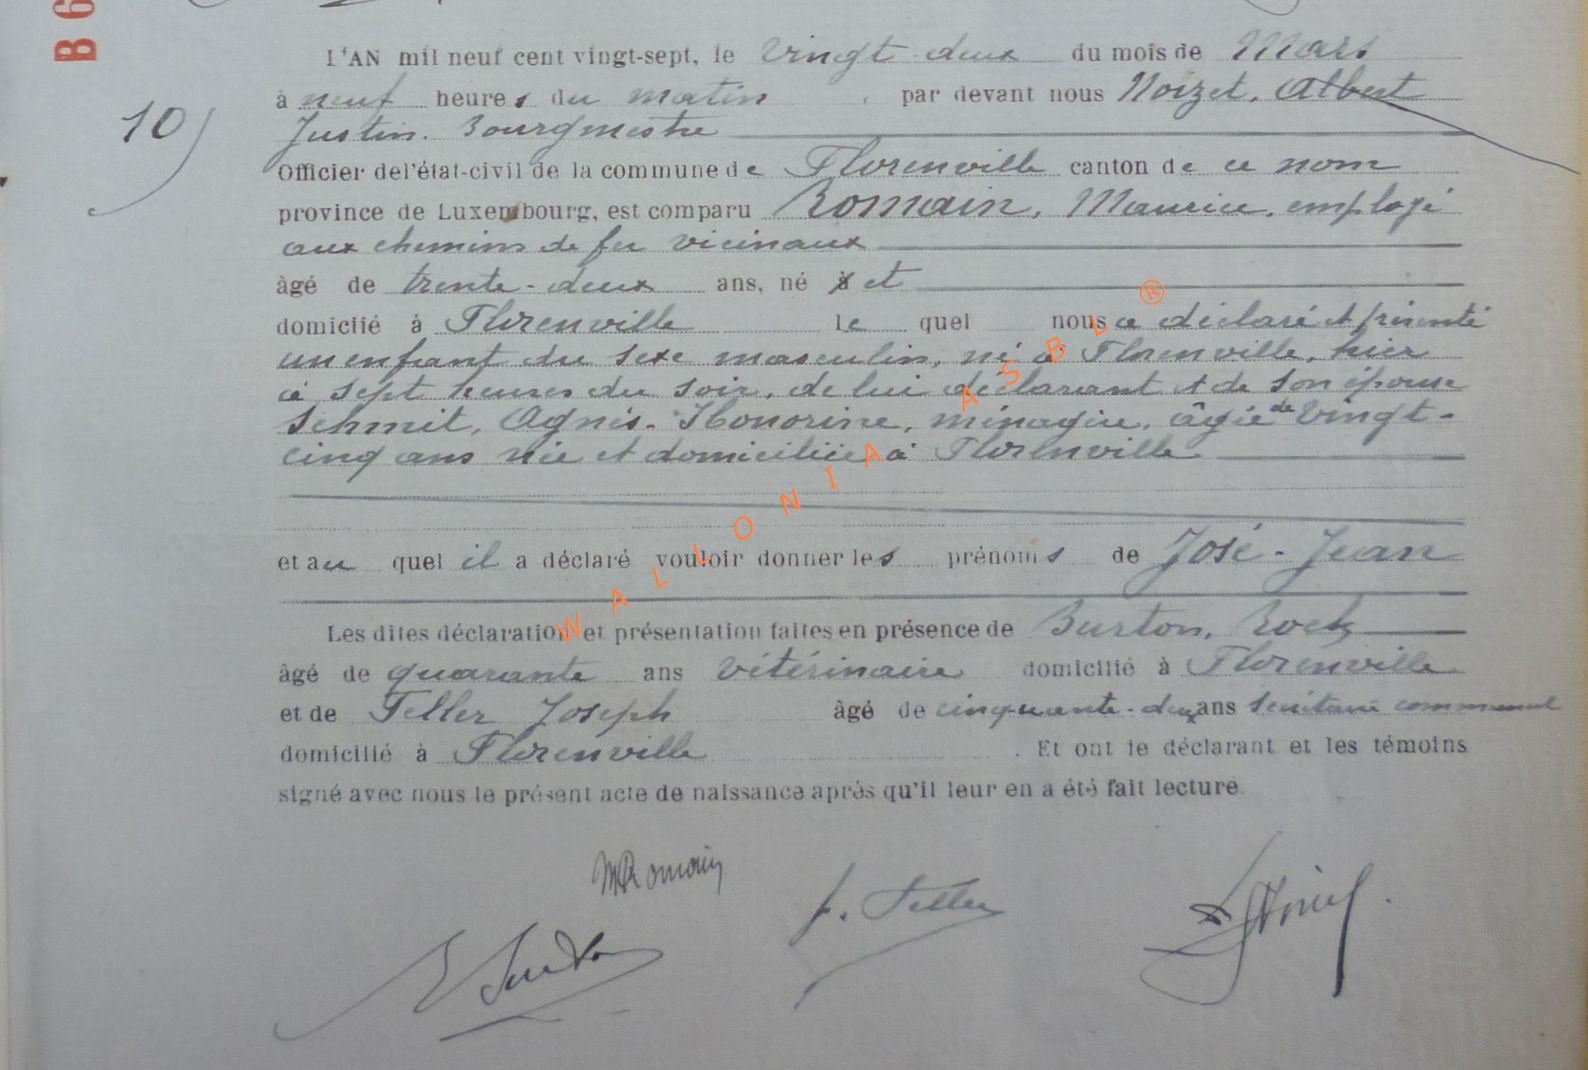 B 6
L'AN mil neuf cent vingt-sept, le vingt-deux du mois de Mars
10)
à neuf heures du matin, par devant nous Noizet, Albert
Justin. Bourgmestre
Officier de l'état-civil de la commune de Florenville canton de ce nom
province de Luxembourg, est comparu Romain, Maurice, employé
aux chemins de fer vicinaux
âgé de trente-deux ans, né à et
domicilié à Florenville lequel nous a déclaré et présenté
un enfant du sexe masculin, né à Florenville, hier
à sept heures du soir, de lui déclarant et de son épouse
Schmit, Agnès-Honorine, ménagère, âgée de vingt-
cinq ans née et domiciliée à Florenville
et au quel il a déclaré vouloir donner les prénoms de José-Jean
Les dites déclaration et présentation faites en présence de Burton,
âgé de quarante ans vétérinaire domicilié à Florenville
et de Feller Joseph âgé de cinquante-deux ans secrétaire communal
domicilié à Florenville. Et ont le déclarant et les témoins
signé avec nous le présent acte de naissance après qu'il leur en a été fait lecture.
MRomain
J. Feller
WALLONIA ASBL ®